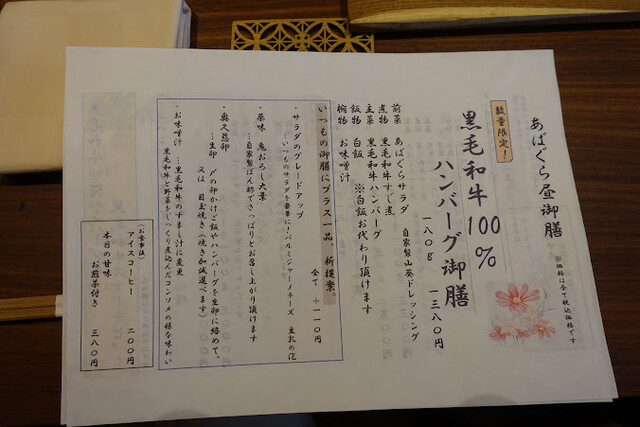 あばぐら昼御膳
※価格は全て税込価格です
数量限定！
黒毛和牛100％
ハンバーグ御膳
一八〇ｇ 一三八〇円
前菜 あばぐらサラダ 自家製山葵ドレッシング
煮物 黒毛和牛すじ煮
主菜 黒毛和牛ハンバーグ
飯物 白飯 ※白飯お代わり頂けます
椀物 お味噌汁
いつもの御膳にプラス一品、新提案。
全て 十一一〇円
・サラダのグレードアップ
…いつものサラダを豪華に！パルミジャーノチーズ 豆乳の泡
・薬味 鬼おろし大葉
…自家製ぽん酢でさっぱりとお召し上がり頂けます
・奥久慈卵
…生卵 〆の卵かけご飯やハンバーグを生卵に絡めて。
又は 目玉焼き（焼き加減選べます）
・お味噌汁 …黒毛和牛のすまし汁に変更
黒毛和牛と野菜をじっくり煮込んだコンソメの様な味わい
（お食事後）
アイスコーヒー 二〇〇円
本日の甘味
お煎茶付き 三八〇円